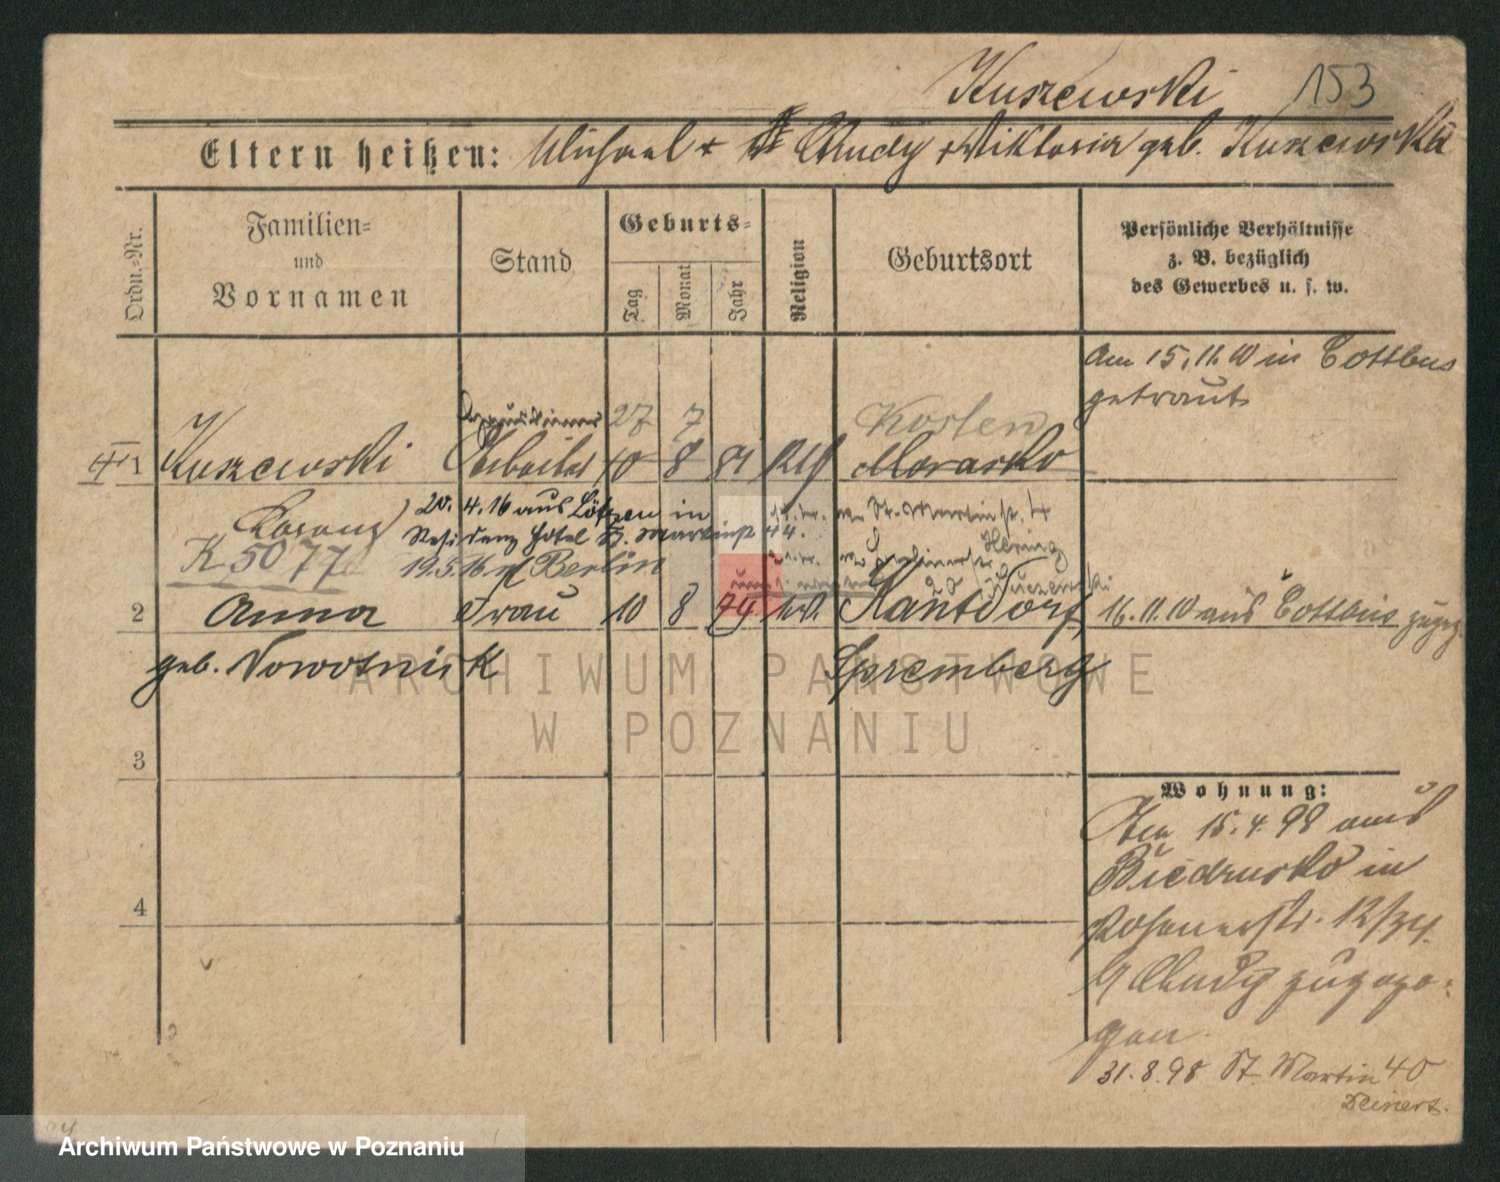 Kuszewski 153
Eltern heißen: Michael + Chudy + Wiktoria geb. Kuszewska
Ordn.-Nr.
Familien-
und
Vornamen
Stand
Geburts-
Tag
Monat
Jahr
Religion
Geburtsort
Persönliche Verhältnisse
z. B. bezüglich
des Gewerbes u. s. w.
Am 15.11.10 in Cottbus
getraut
27 7 Kosten
1 Kuszewski Arbeiter 10 8 81 Morasko
20. 4. 16 aus Lötzen in
Residenz Hotel St. Martinstr 44.
St. Martinstr. 4
K 5077
19.5.16 n/ Berlin
Hering
2 Anna Frau 10 8 79 kath. Kantdorf 16.11.10 aus Cottbus zugez.
geb. Nowotnick Spremberg
3
Wohnung:
15. 4. 98 aus
Biedrusko in
Posenerstr. 12/
b/ Chudy zugezo-
gen.
31. 8. 98 St. Martin 40
Deinert.
4
ARCHIWUM PAŃSTWOWE
W POZNANIU
Archiwum Państwowe w Poznaniu